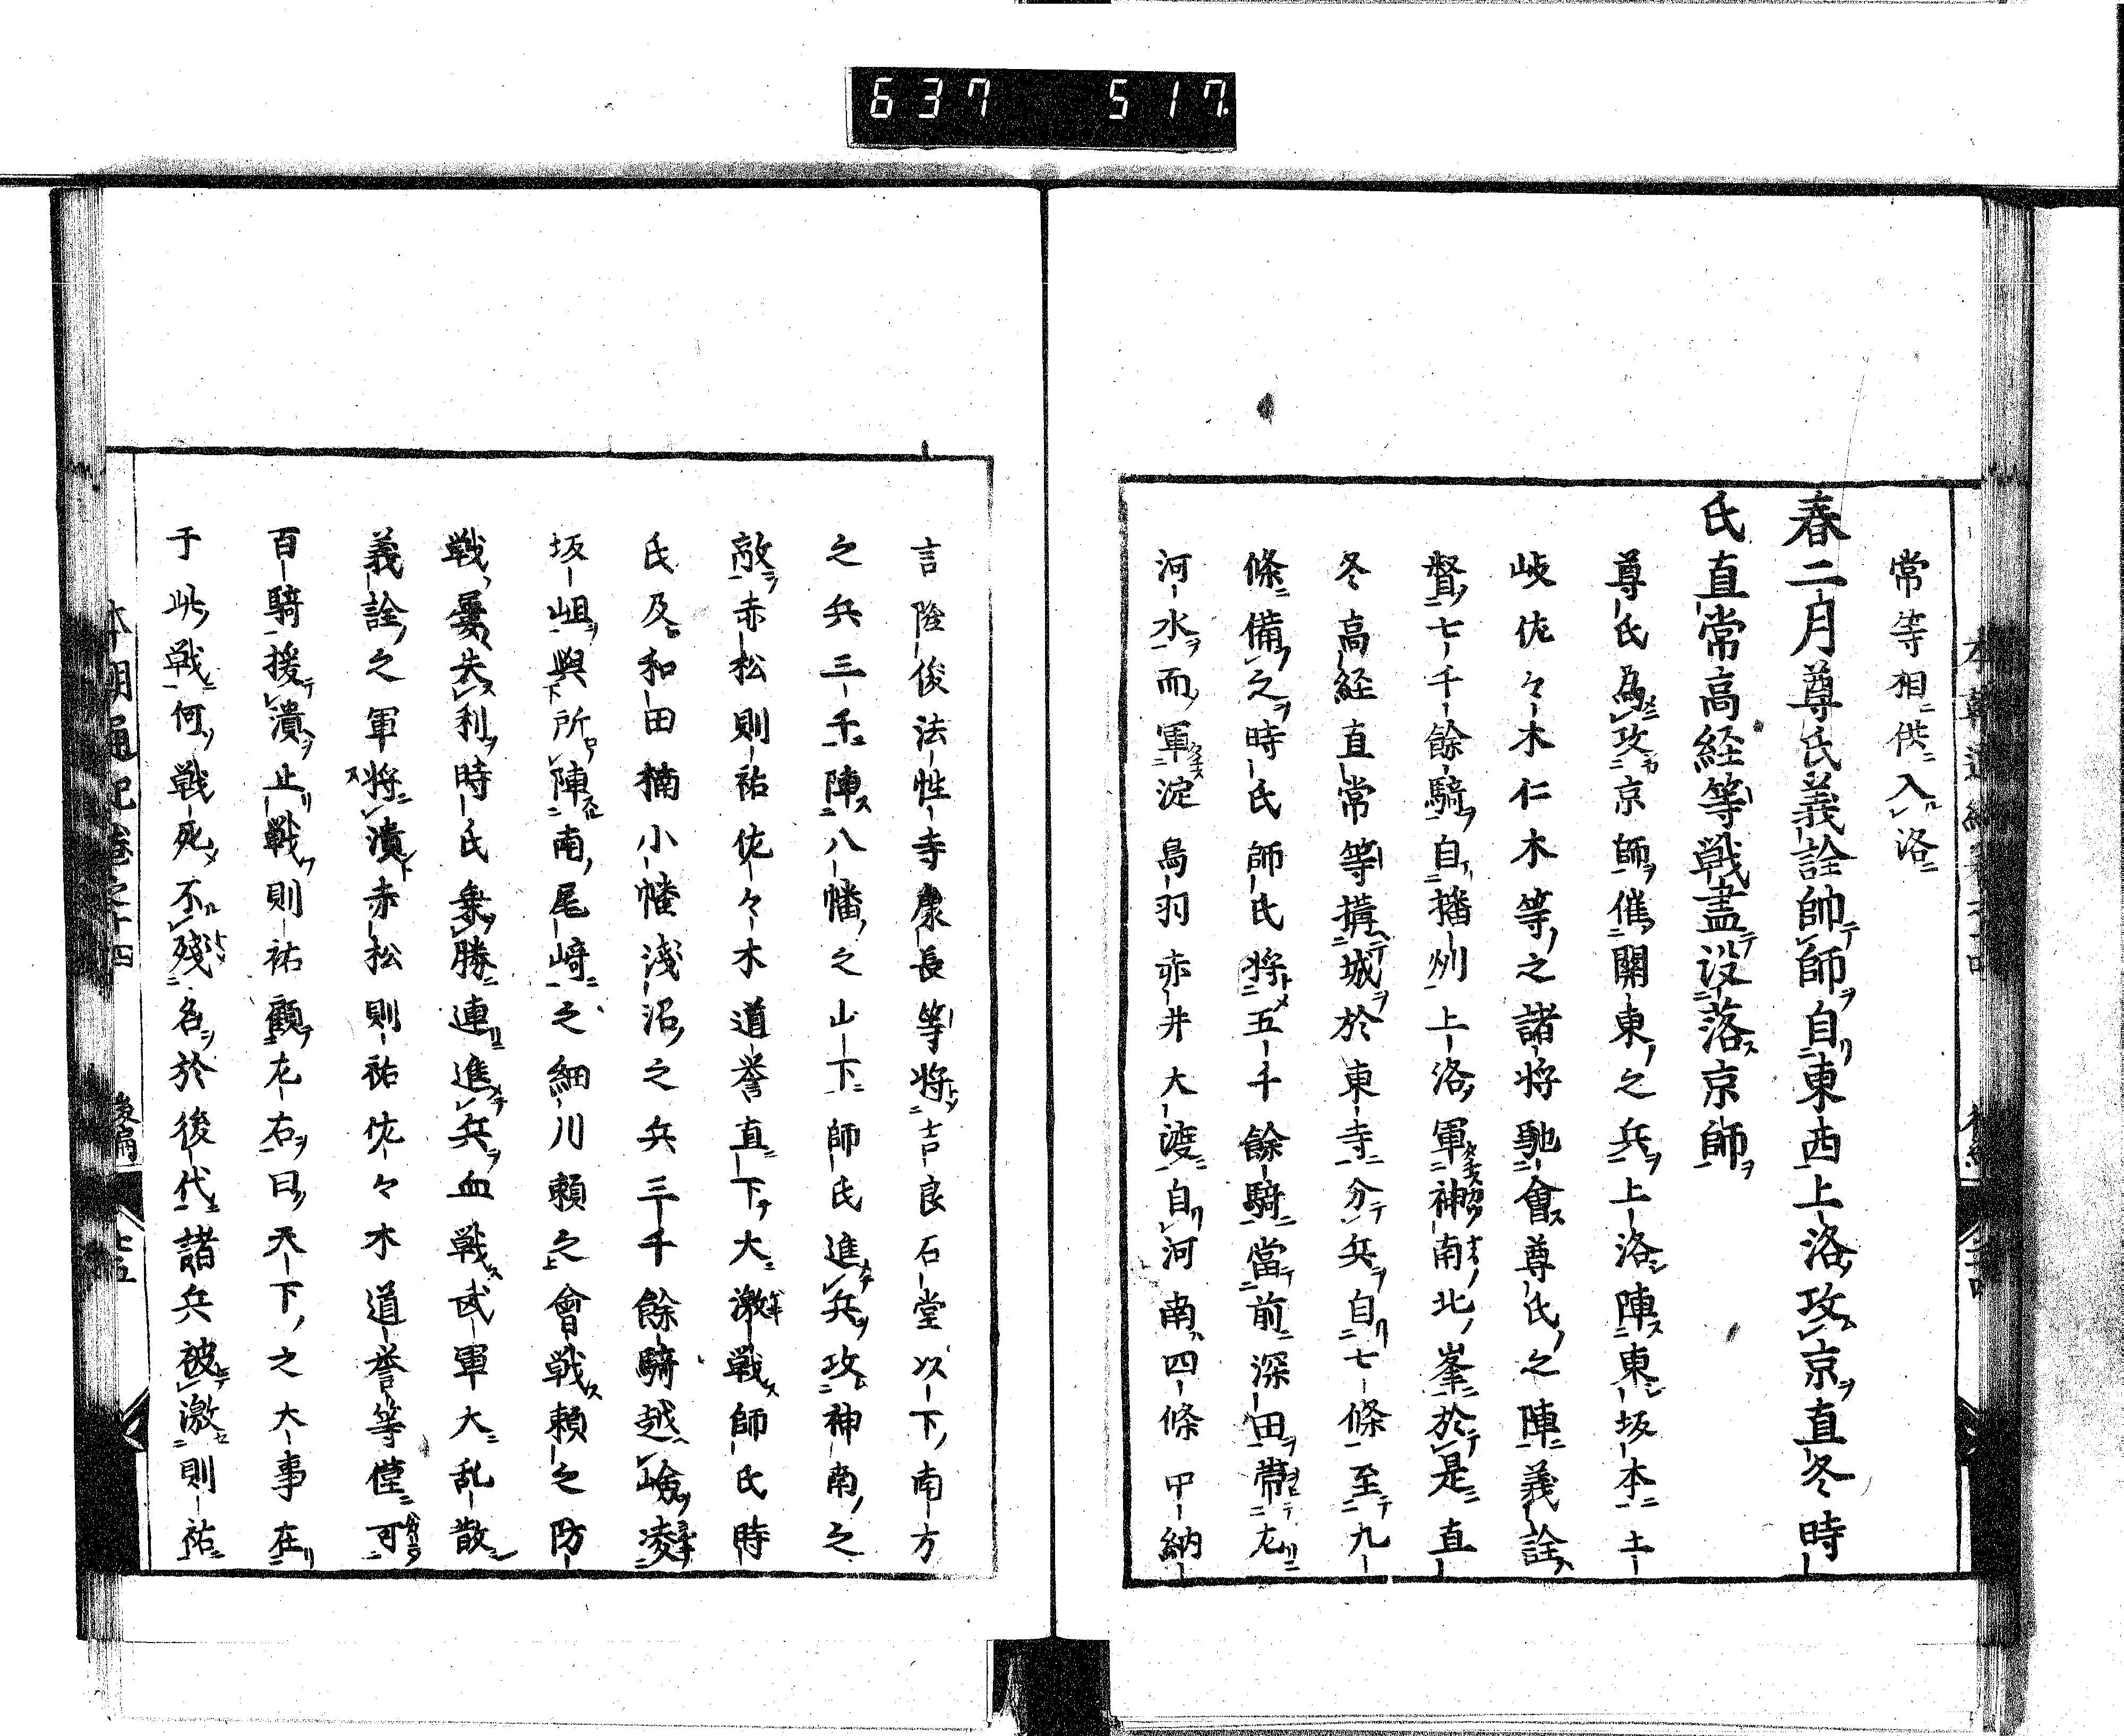 637 517
常等相供入洛
春二月尊氏義詮帥師自東西上洛攻京直冬時
氏直常高経等戦盡没落京師
尊氏為攻京師催關東之兵上洛陣東坂本土
岐佐々木仁木等之諸将馳會尊氏之陣義詮
督七千餘騎自播州上洛軍神南北峯於是直
冬高経直常等搆城於東寺分兵自七條至九
條備之時氏師氏将五千餘騎當前深田帯左
河水而軍淀鳥羽赤井大渡自河南四條中納
言隆俊法性寺康長等将吉良石堂以下南方
之兵三千陣八幡之山下師氏進兵攻神南之
敵赤松則祐佐々木道誉直下大激戦師氏時
氏及和田楠小幡淺沼之兵三千餘騎越嶮凌
坂岨與所陣南尾﨑之細川頼之會戦頼之防
戦屡失利時氏乗勝連進兵血戦武軍大乱散
義詮之軍将潰赤松則祐佐々木道誉等僅可
百騎援潰止戦則祐顧左右曰天下之大事在
于此戦何戦死不残名於後代諸兵被激則祐
本朝通紀巻之十四 後編 廿五